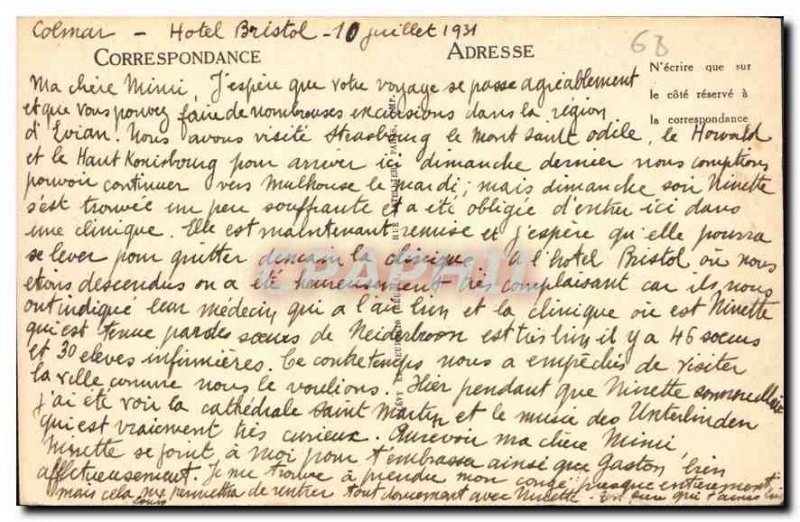 Colmar - Hotel Bristol - 10 juillet 1931
CORRESPONDANCE
ADRESSE
68
N'écrire que sur
le côté réservé à
la correspondance
Ma chère Mimi, J'espère que votre voyage se passe agréablement
et que vous pouvez faire de nombreuses excursions dans la région
d'Evian. Nous avons visité Strasbourg le Mont Sainte Odile, le Howald
et le Haut Konisbourg pour arriver ici dimanche dernier nous comptions
pouvoir continuer vers Mulhouse le mardi; mais dimanche soir Ninette
s'est trouvée un peu souffrante et a été obligée d'entrer ici dans
une clinique. Elle est maintenant remise et j'espère qu'elle pourra
se lever pour quitter demain la clinique. A l'hotel Bristol où nous
etions descendus on a été heureusement très complaisant car ils nous
ont indiqué leur médecin qui a l'air bien et la clinique où est Ninette
qui est tenue par des sœurs de Neiderbronn est très bien, il y a 46 sœurs
et 30 eleves infirmières. Ce contretemps nous a empêchés de visiter
la ville comme nous le voulions. Hier pendant que Ninette sommeillait
j'ai été voir la cathédrale Saint Martin et le musée des Unterlinden
qui est vraiment très curieux. Aurevoir ma chère Mimi,
Ninette se joint à moi pour t'embrasser ainsi que Gaston, bien
affectueusement. Je me trouve à prendre mon congé presque entièrement
mais cela me permettra de rentrer tout doucement avec Ninette. qui t'aime
CPAPHIL